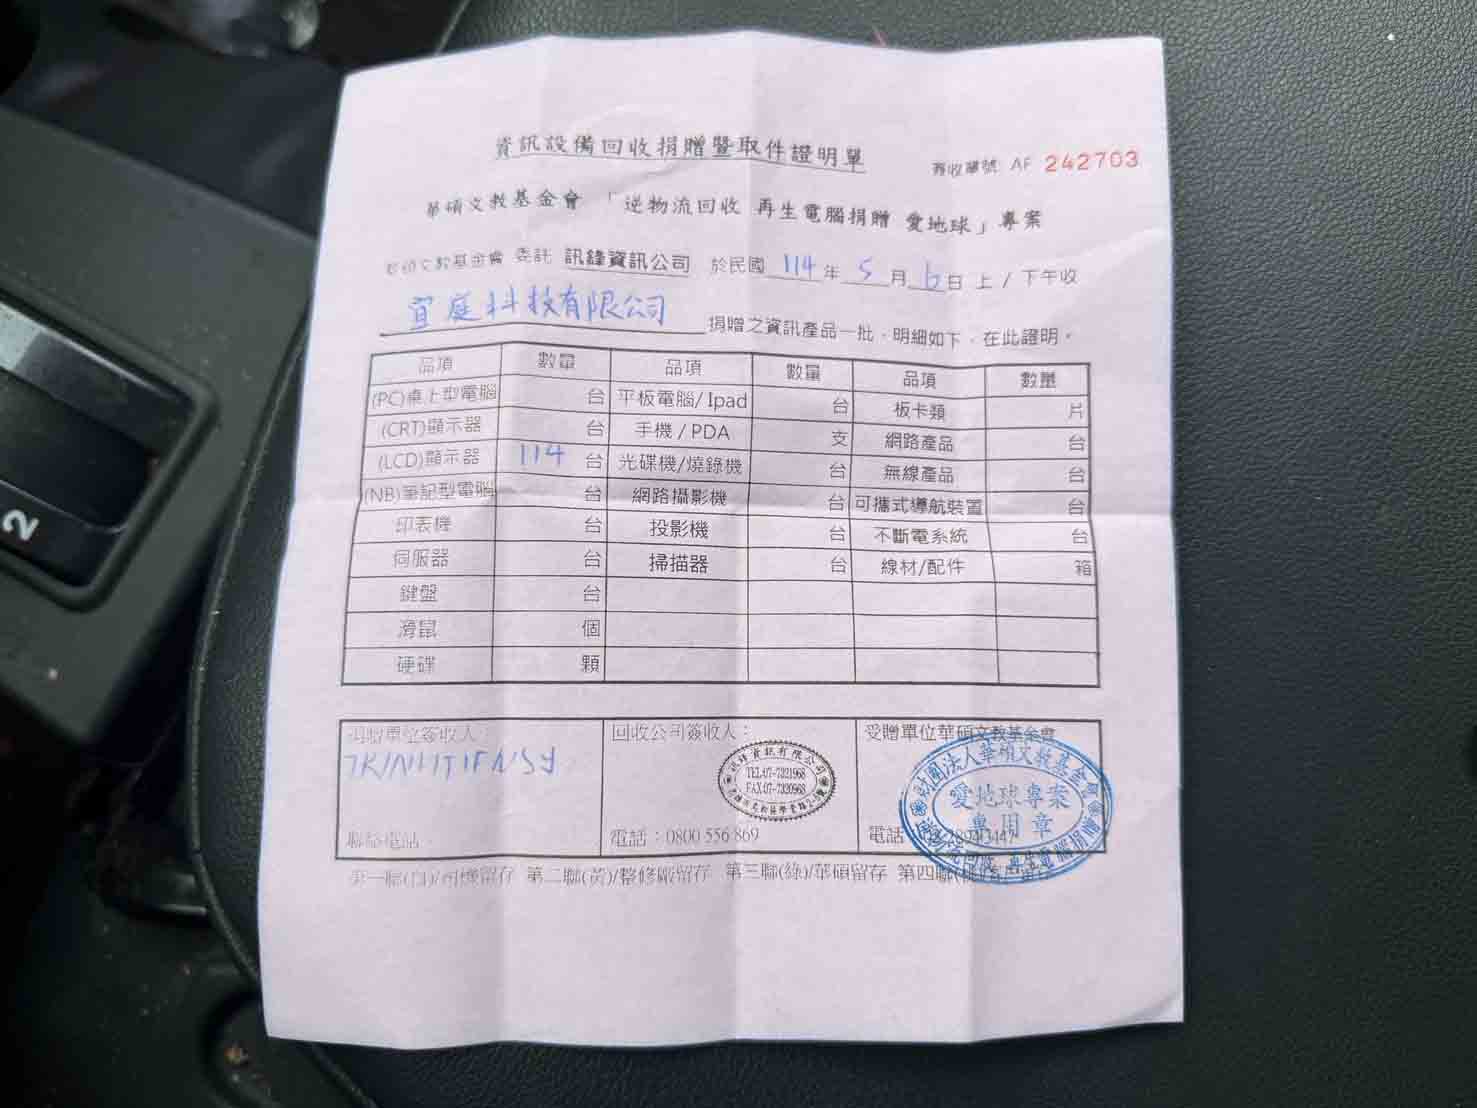 資訊設備回收捐贈暨取件證明單
簽收單號 AF 242703
華碩文教基金會 「逆物流回收 再生電腦捐贈 愛地球」專案
華碩文教基金會 委託 訊鋒資訊公司 於民國 114 年 5 月 6 日 上 / 下午收
宜庭科技有限公司 捐贈之資訊產品一批,明細如下,在此證明。
品項 數量 品項 數量 品項 數量
(PC)桌上型電腦 台 平板電腦/ Ipad 台 板卡類 片
(CRT)顯示器 台 手機 / PDA 支 網路產品 台
(LCD)顯示器 114 台 光碟機/燒錄機 台 無線產品 台
(NB)筆記型電腦 台 網路攝影機 台 可攜式導航裝置 台
印表機 台 投影機 台 不斷電系統 台
伺服器 台 掃描器 台 線材/配件 箱
鍵盤 台
滑鼠 個
硬碟 顆
捐贈單位簽收人: 回收公司簽收人: 受贈單位華碩文教基金會
訊鋒資訊有限公司
TEL:07-7321968
FAX:07-7320968
財團法人華碩文教基金會
愛地球專案
專用章
逆物流回收 再生電腦捐贈
聯絡電話 電話:0800 556 869 電話
第一聯(白)/司機留存 第二聯(黃)/整修廠留存 第三聯(綠)/華碩留存 第四聯
2